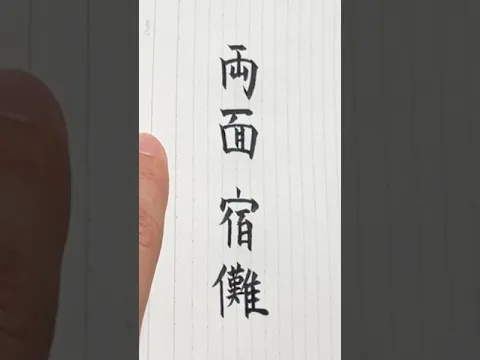 両面 宿儺